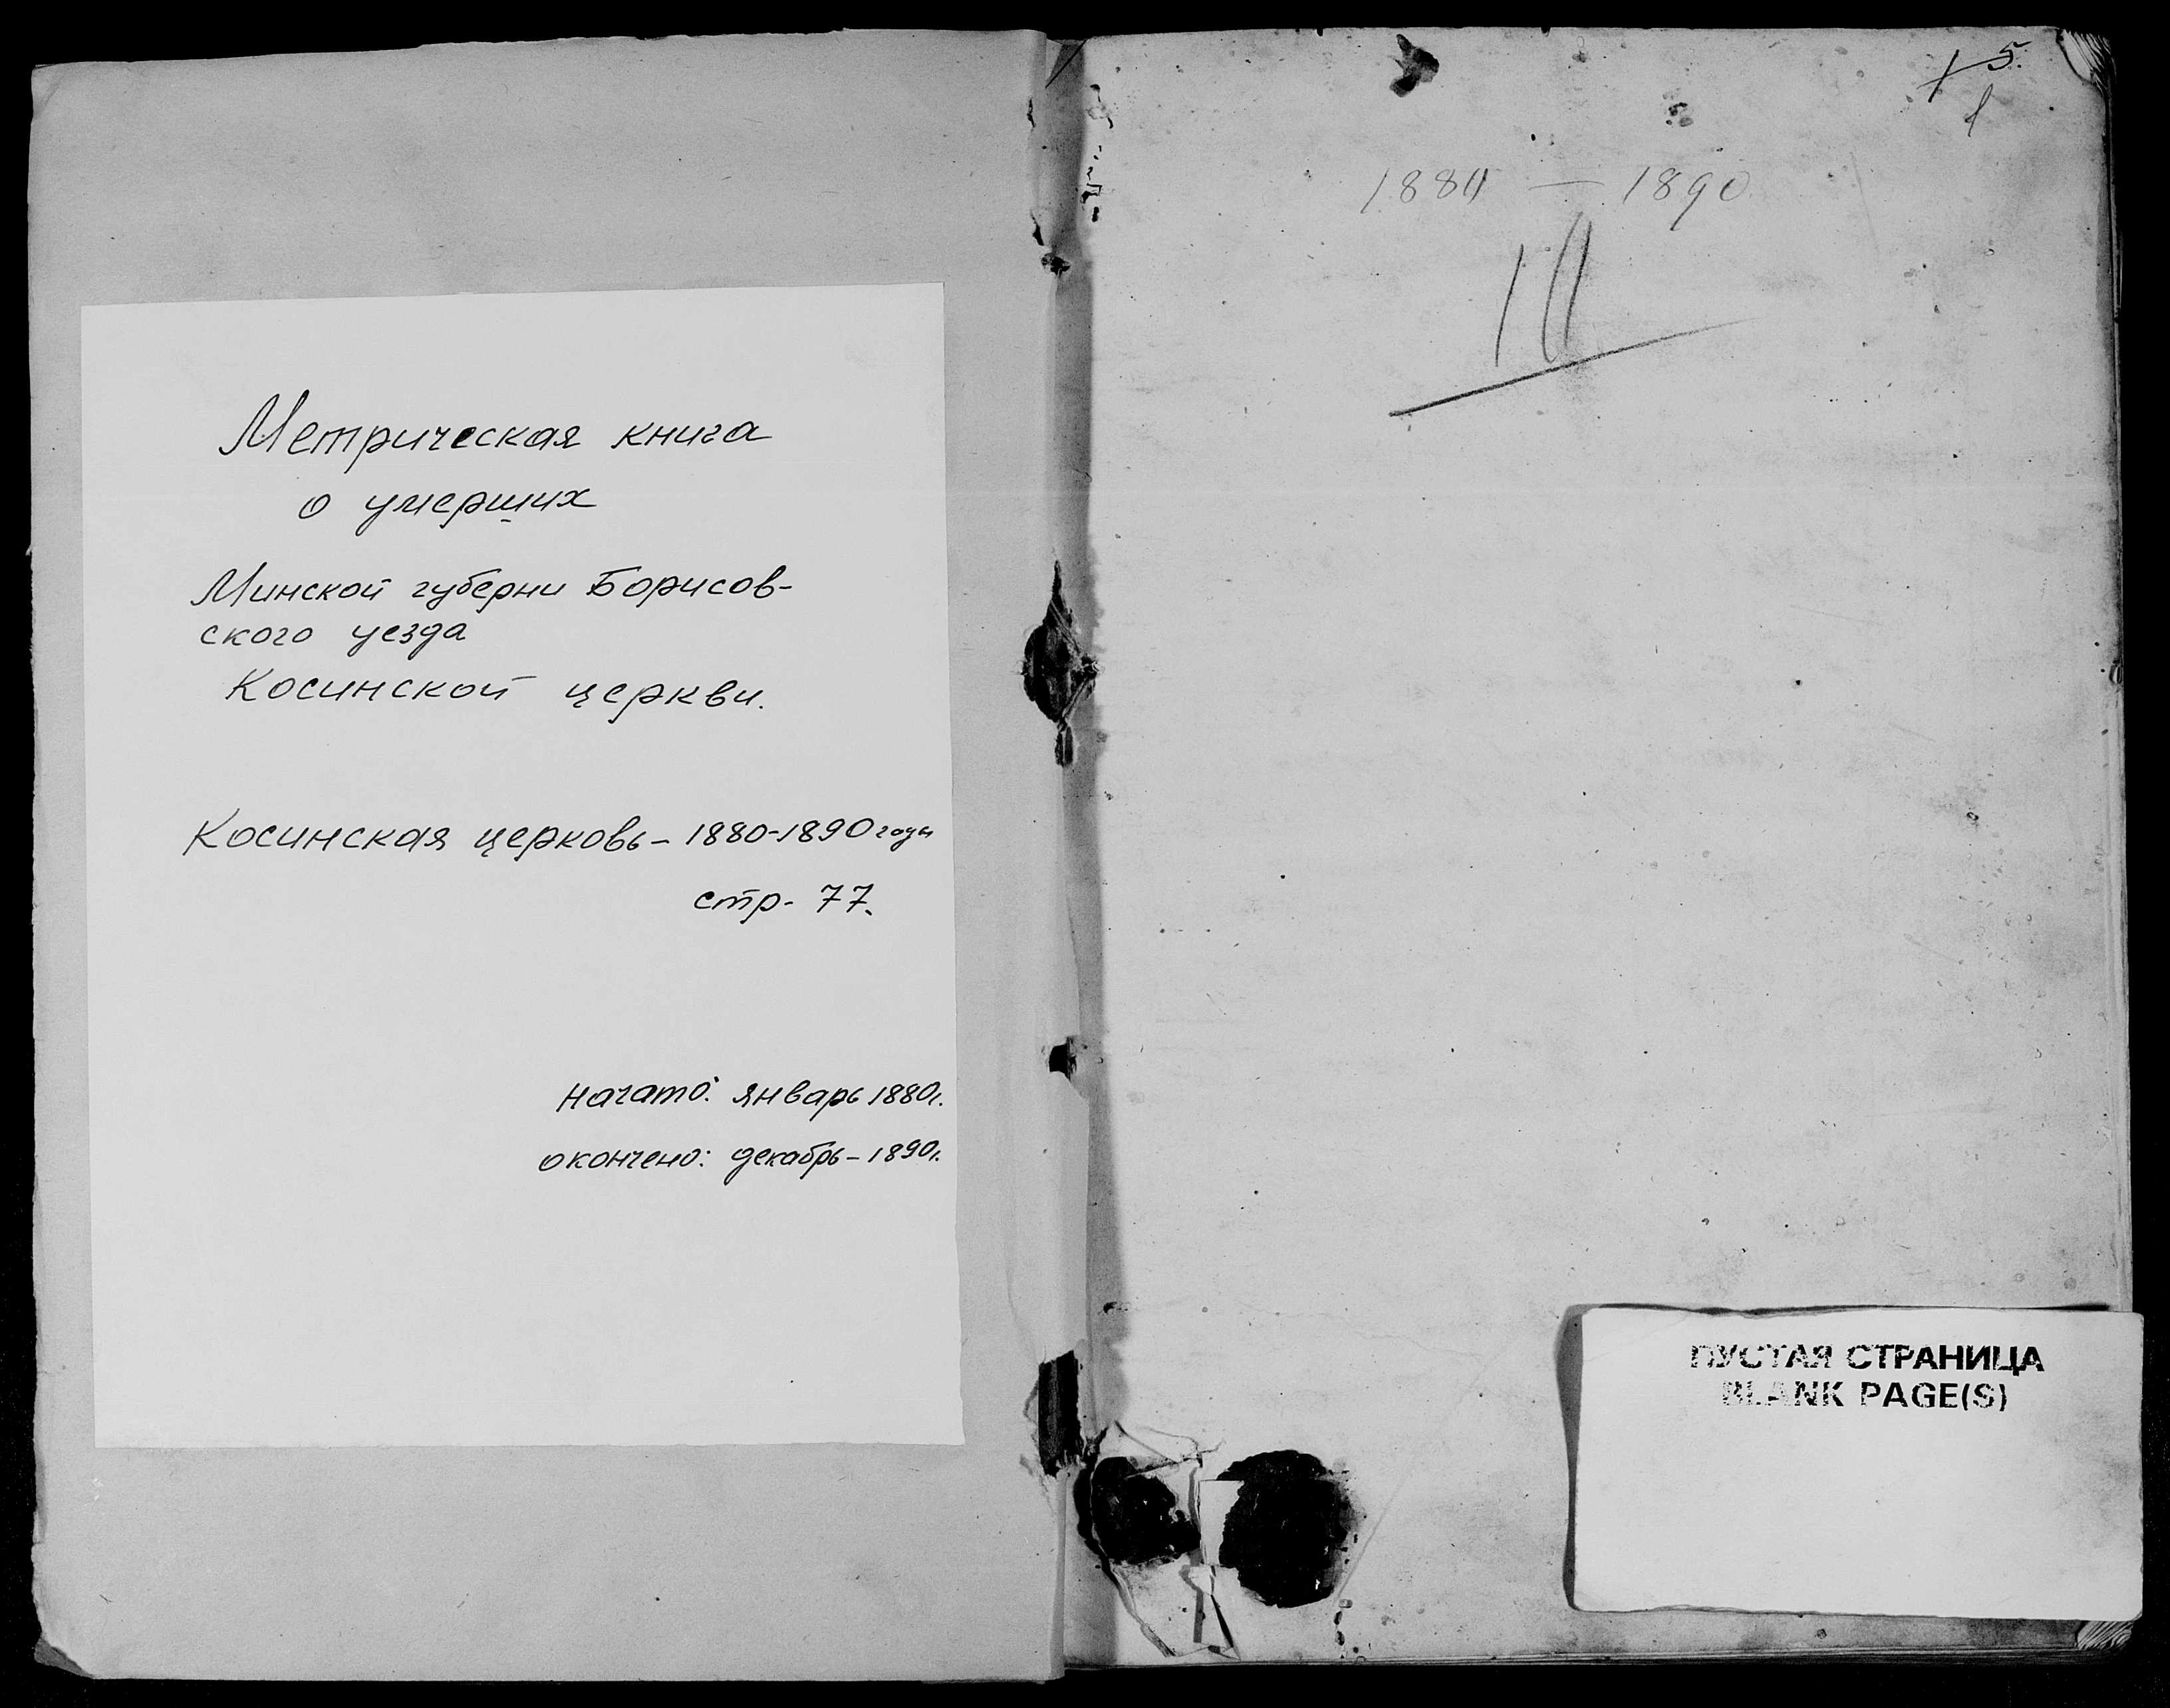 Метрическая книга
о умерших
Минской губерни Борисов-
ского уезда
Косинской церкви.
Косинская церковь – 1880-1890 годы
стр. 77.
Начато: январь 1880г.
окончено: декабрь – 1890г.
5.
1
1880 — 1890
10
ПУСТАЯ СТРАНИЦА
BLANK PAGE(S)